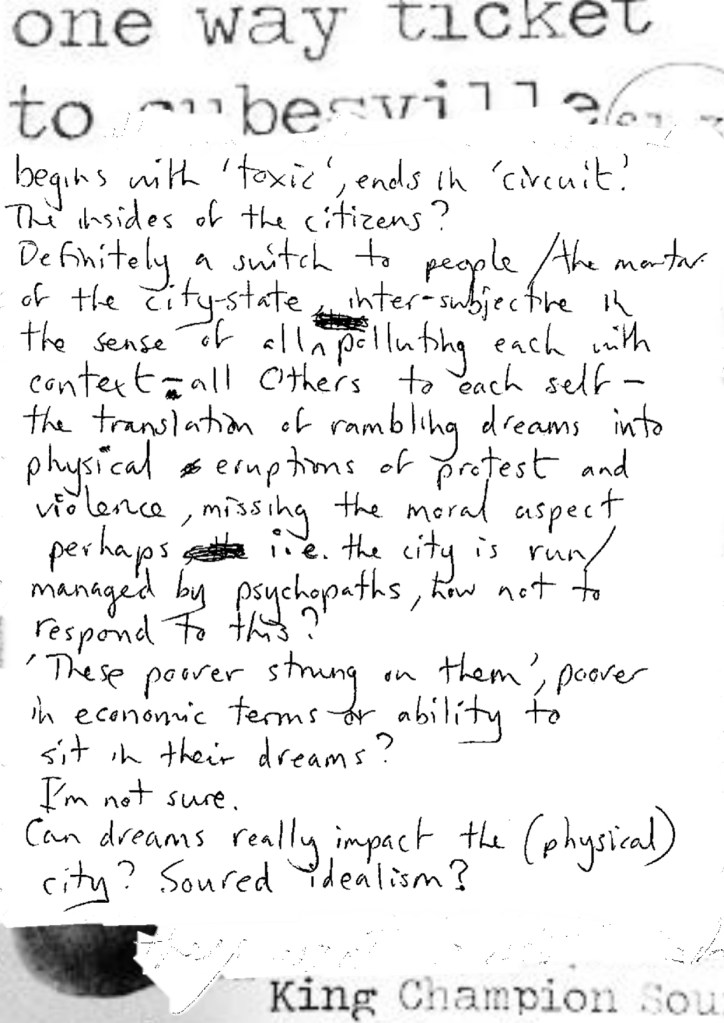 one way ticket
to cubesville
begins with 'toxic', ends in 'circuit'.
The insides of the citizens?
Definitely a switch to people / the mortar
of the city-state, inter-subjective in
the sense of all polluting each with
context – all Others to each self –
the translation of rambling dreams into
physical eruptions of protest and
violence, missing the moral aspect
perhaps i.e. the city is run/
managed by psychopaths, how not to
respond to this?
'These poorer strung on them', poorer
in economic terms or ability to
sit in their dreams?
I'm not sure.
Can dreams really impact the (physical)
city? Soured idealism?
King Champion Sou